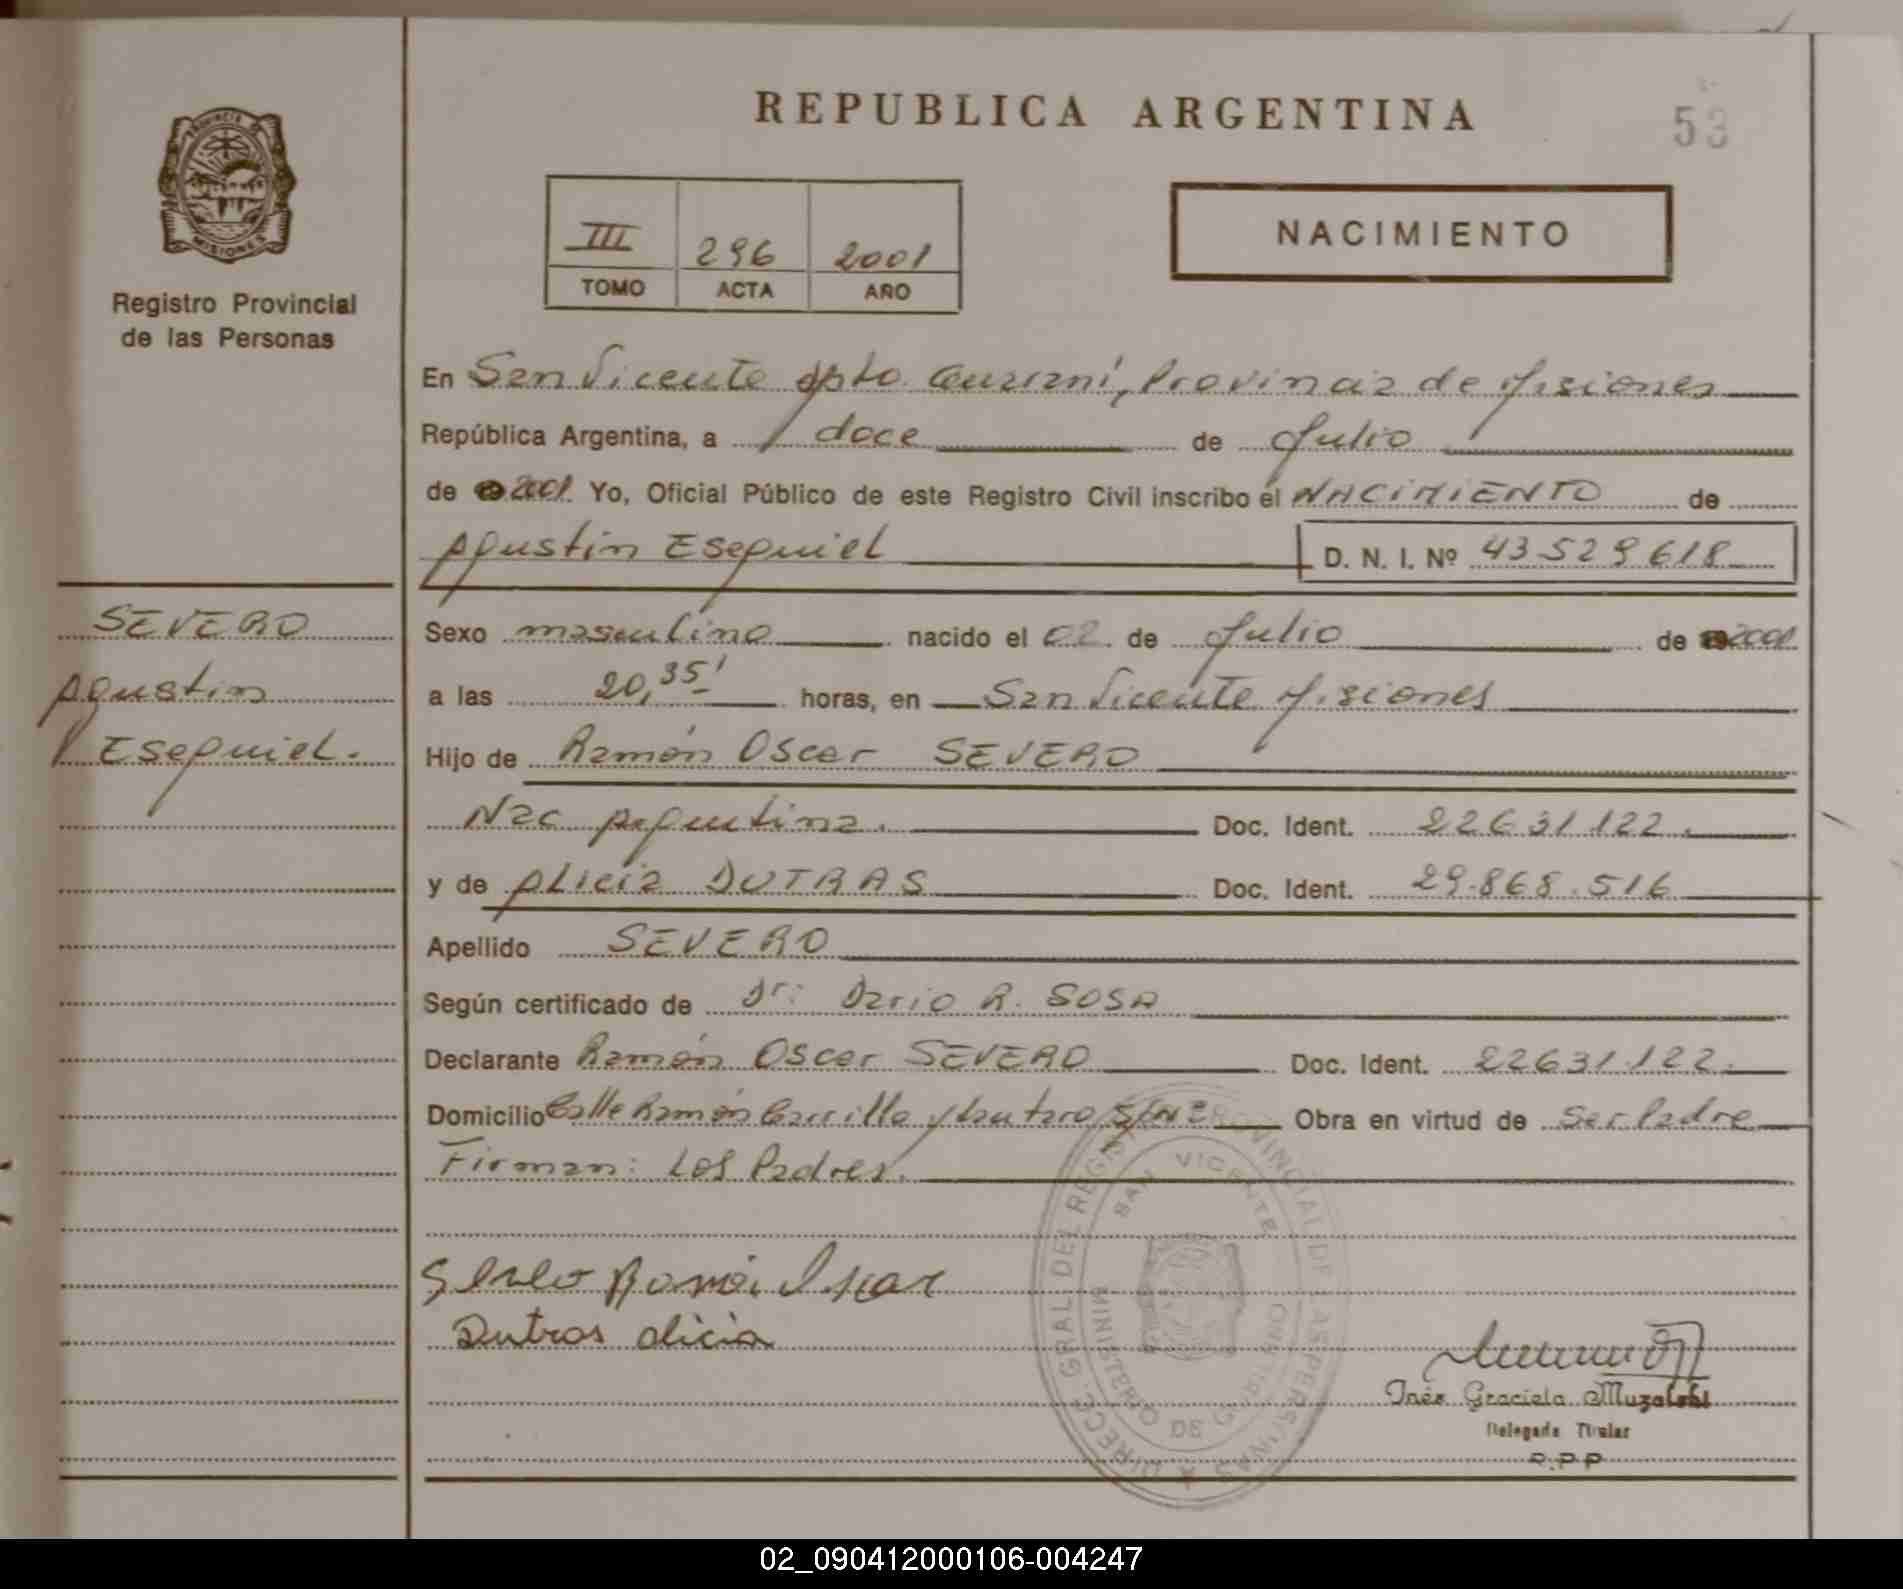 REPUBLICA ARGENTINA
53
PROVINCIA DE
MISIONES
Registro Provincial
de las Personas
III 296 2001
TOMO ACTA AÑO
NACIMIENTO
En San Vicente Dpto. Guaraní, Provincia de Misiones
República Argentina, a doce de Julio
de 2001. Yo, Oficial Público de este Registro Civil inscribo el NACIMIENTO de
Agustin Esequiel D. N. I. Nº 43529618
SEVERO
Agustin
Esequiel.
Sexo masculino nacido el 02 de Julio de 2001
a las 20,35' horas, en San Vicente Misiones
Hijo de Ramón Oscar SEVERO
Nac Argentina. Doc. Ident. 22631122.
y de Alicia DUTRAS Doc. Ident. 29.868.516
Apellido SEVERO
Según certificado de Dr: Dario R. SOSA
Declarante Ramón Oscar SEVERO Doc. Ident. 22631.122.
Domicilio Calle Ramón Carrillo y Lautaro S/Nº Obra en virtud de Ser Padre
Firman: Los Padres.
DIRECC. GRAL DEL REGISTRO PROVINCIAL DE LAS PERSONAS
SAN VICENTE
MINISTERIO DE GOBIERNO
Ramón Oscar
Dutras alicia
Inés Graciela Muzalski
Delegada Titular
R.P.P
02_090412000106-004247